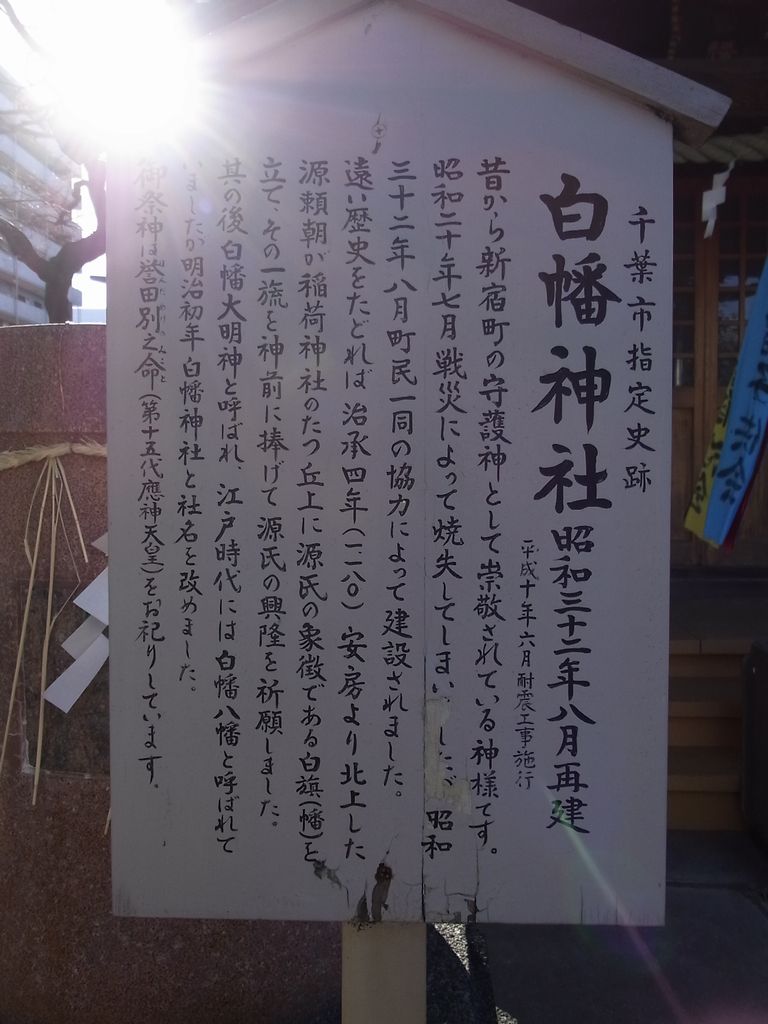 千葉市指定史跡
白幡神社 昭和三十二年八月再建
平成十年六月耐震工事施行
昔から新宿町の守護神として崇敬されている神様です。
昭和二十年七月戦災によって焼失してしまい したが 昭和
三十二年八月町民一同の協力によって建設されました。
遠い歴史をたどれば 治承四年(一一八〇) 安房より北上した
源頼朝が稲荷神社のたつ丘上に源氏の象徴である白旗(幡)を
立て、その一旒を神前に捧げて源氏の興隆を祈願しました。
其の後白幡大明神と呼ばれ、江戸時代には白幡八幡と呼ばれて
いましたが明治初年白幡神社と社名を改めました。
御祭神は誉田別之命(第十五代應神天皇)をお祀りしています。